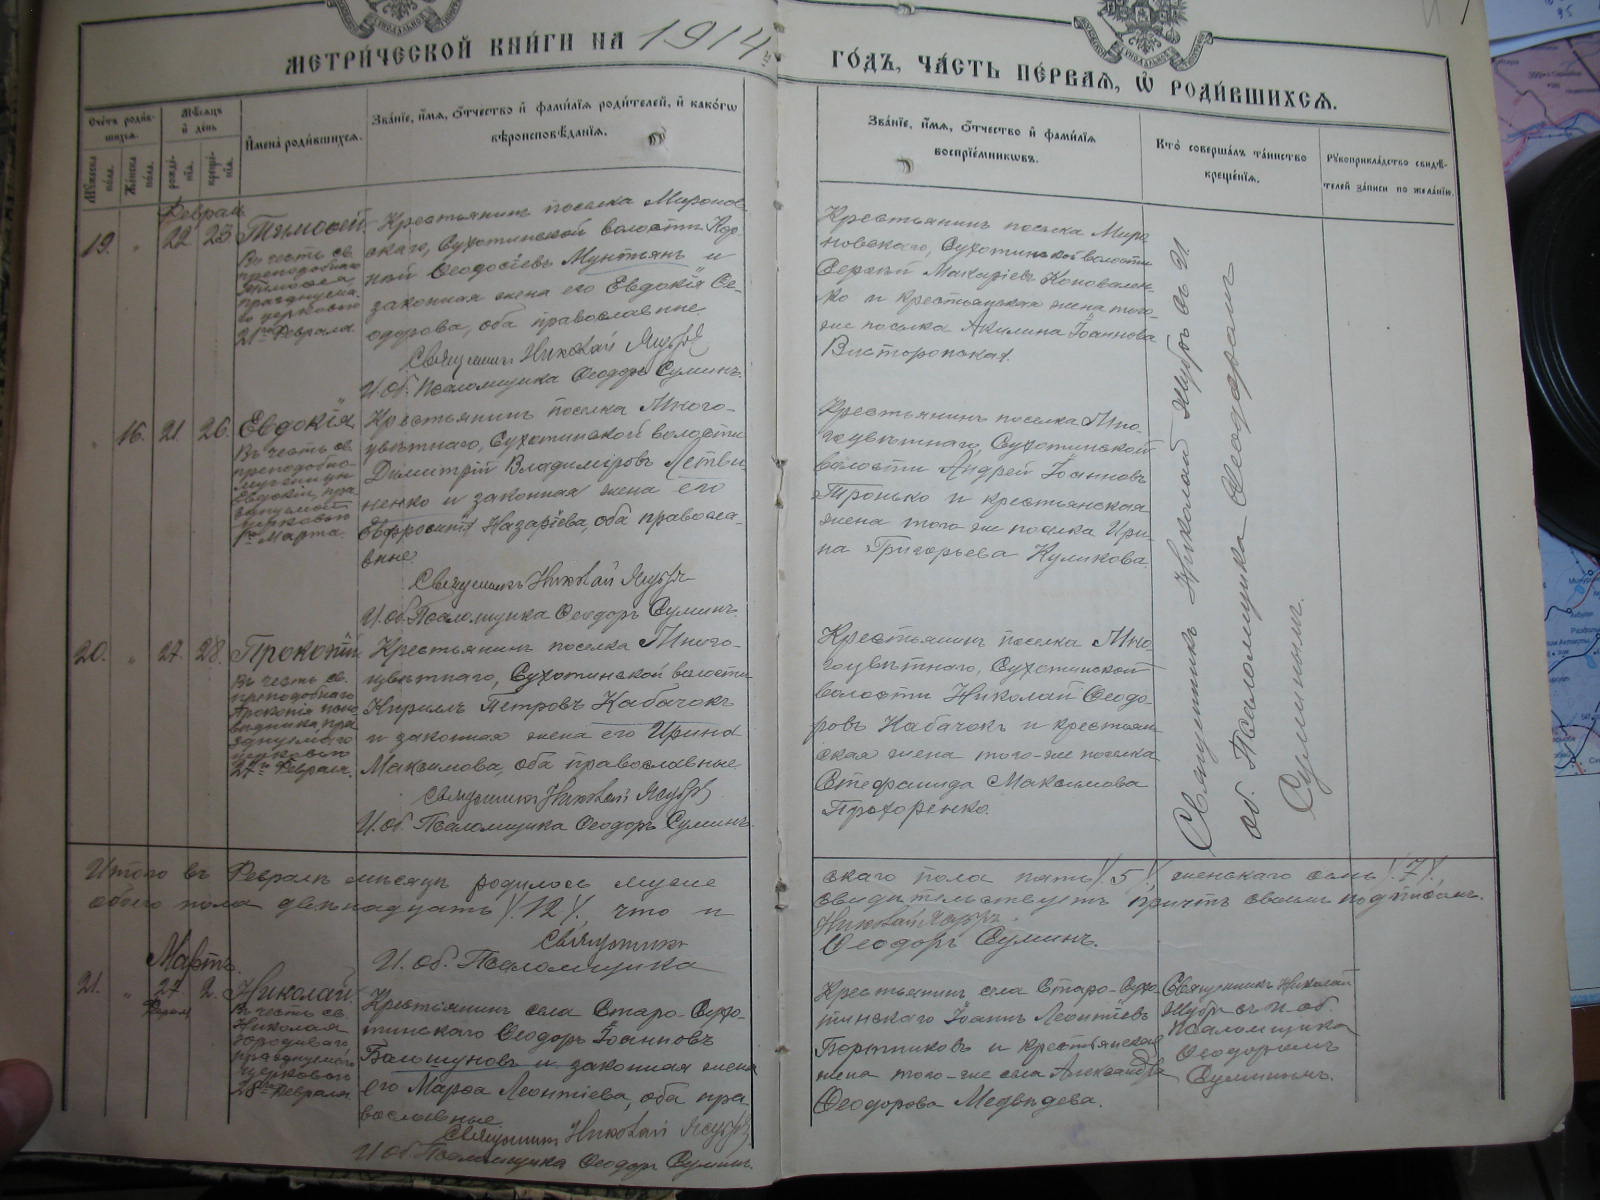 МЕТРИ́ЧЕСКОЙ КНИ́ГИ НА 1914й ГО́ДЪ, ЧА́СТЬ ПЕ́РВАЯ, Ѡ РОДИ́ВШИХСЯ.
Сче́тъ роди́вшихся.
Му́жеска по́ла.
Же́нска по́ла.
Мѣ́сяцъ и де́нь
рожде́нїя.
креще́нїя.
И҆мена̀ роди́вшихся.
Зва́нїе, и҆́мя, о҆́тчество и҆ фами́лїя роди́телей, и҆ како́гѡ
вѣроисповѣ́данїя.
Зва́нїе, и҆́мя, о҆́тчество и҆ фами́лїя
воспрїе́мникѡвъ.
Кто̀ соверша́лъ та́инство
креще́нїя.
Рꙋкоприкла́дство свидѣ́-
телей за́писи по жела́нїю.
Феврал
19. " 22 23
Тимоѳей
Въ честь св.
преподобнаго
Тимоѳея,
празднуема-
го церковью
21го Февраля.
Крестьянинъ поселка Миронов-
скаго, Сухотинской волости
Ѳеодосіевъ Мунтянъ и
законная жена его Евдокія Ѳе-
одорова, оба православные
Священникъ Николай
И. об. Псаломщика Ѳеодоръ Суминъ.
Крестьянинъ поселка Миро-
новскаго, Сухотинской волости
Сергѣй Макаріевъ Коновален-
ко и крестьянская жена того-
же поселка Акилина Іоаннова
" 16. 21. 26.
Евдокія
Въ честь св.
преподобно-
мученицы
Евдокіи, пра-
зднуемой
церковью
1го Марта.
Крестьянинъ поселка Много-
цвѣтнаго, Сухотинской волости
Димитрій Владиміровъ Литви-
ненко и законная жена его
Евфросинія Назаріева, оба правосла-
вные.
Священникъ Николай
И. об. Псаломщика Ѳеодоръ Суминъ.
Крестьянинъ поселка Мно-
гоцвѣтнаго, Сухотинской
волости Андрей Іоанновъ
Тронько и крестьянская
жена того-же поселка Ири-
на Григорьева Куликова.
20. " 27. 28.
Прокопій
Въ честь св.
преподобнаго
Прокопія испо-
вѣдника, пра-
зднуемаго
церковью
27го Февраля.
Крестьянинъ поселка Много-
цвѣтнаго, Сухотинской волости
Кириллъ Петровъ Кабачокъ
и законная жена его Ирина
Максимова, оба православные
Священникъ Николай
И. об. Псаломщика Ѳеодоръ Суминъ.
Крестьянинъ поселка Мно-
гоцвѣтнаго, Сухотинской
волости Николай Ѳеодо-
ровъ Кабачокъ и крестьян-
ская жена того-же поселка
Стефанида Максимова
Прохоренко.
Священникъ Николай съ И.
об. Псаломщика Ѳеодоромъ
Суминымъ.
Итого въ Февралѣ мѣсяцѣ родилось муже-
скаго пола пять /.5./, женскаго семь /.7./,
обоего пола двѣнадцать /.12./, что и
свидѣтельствуетъ причтъ своимъ подписомъ.
Священникъ
Николай
И. об. Псаломщика
Ѳеодоръ Суминъ.
Мартъ.
21. " 27 2.
Февраля
Николай
Въ честь св.
Николая
юродиваго,
празднуемаго
церковью
28го Февраля
Крестьянинъ села Старо-Сухо-
тинскаго Ѳеодоръ Іоанновъ
Балашуновъ и законная жена
его Марѳа Леонтіева, оба пра-
вославные.
Священникъ Николай
И. об. Псаломщика Ѳеодоръ Суминъ.
Крестьянинъ села Старо-Сухо-
тинскаго Іоаннъ Леонтіевъ
Бортниковъ и крестьянская
жена того-же села Александра
Ѳеодорова Медвѣдева.
Священникъ Николай
съ и. об.
Псаломщика
Ѳеодоромъ
Суминымъ.